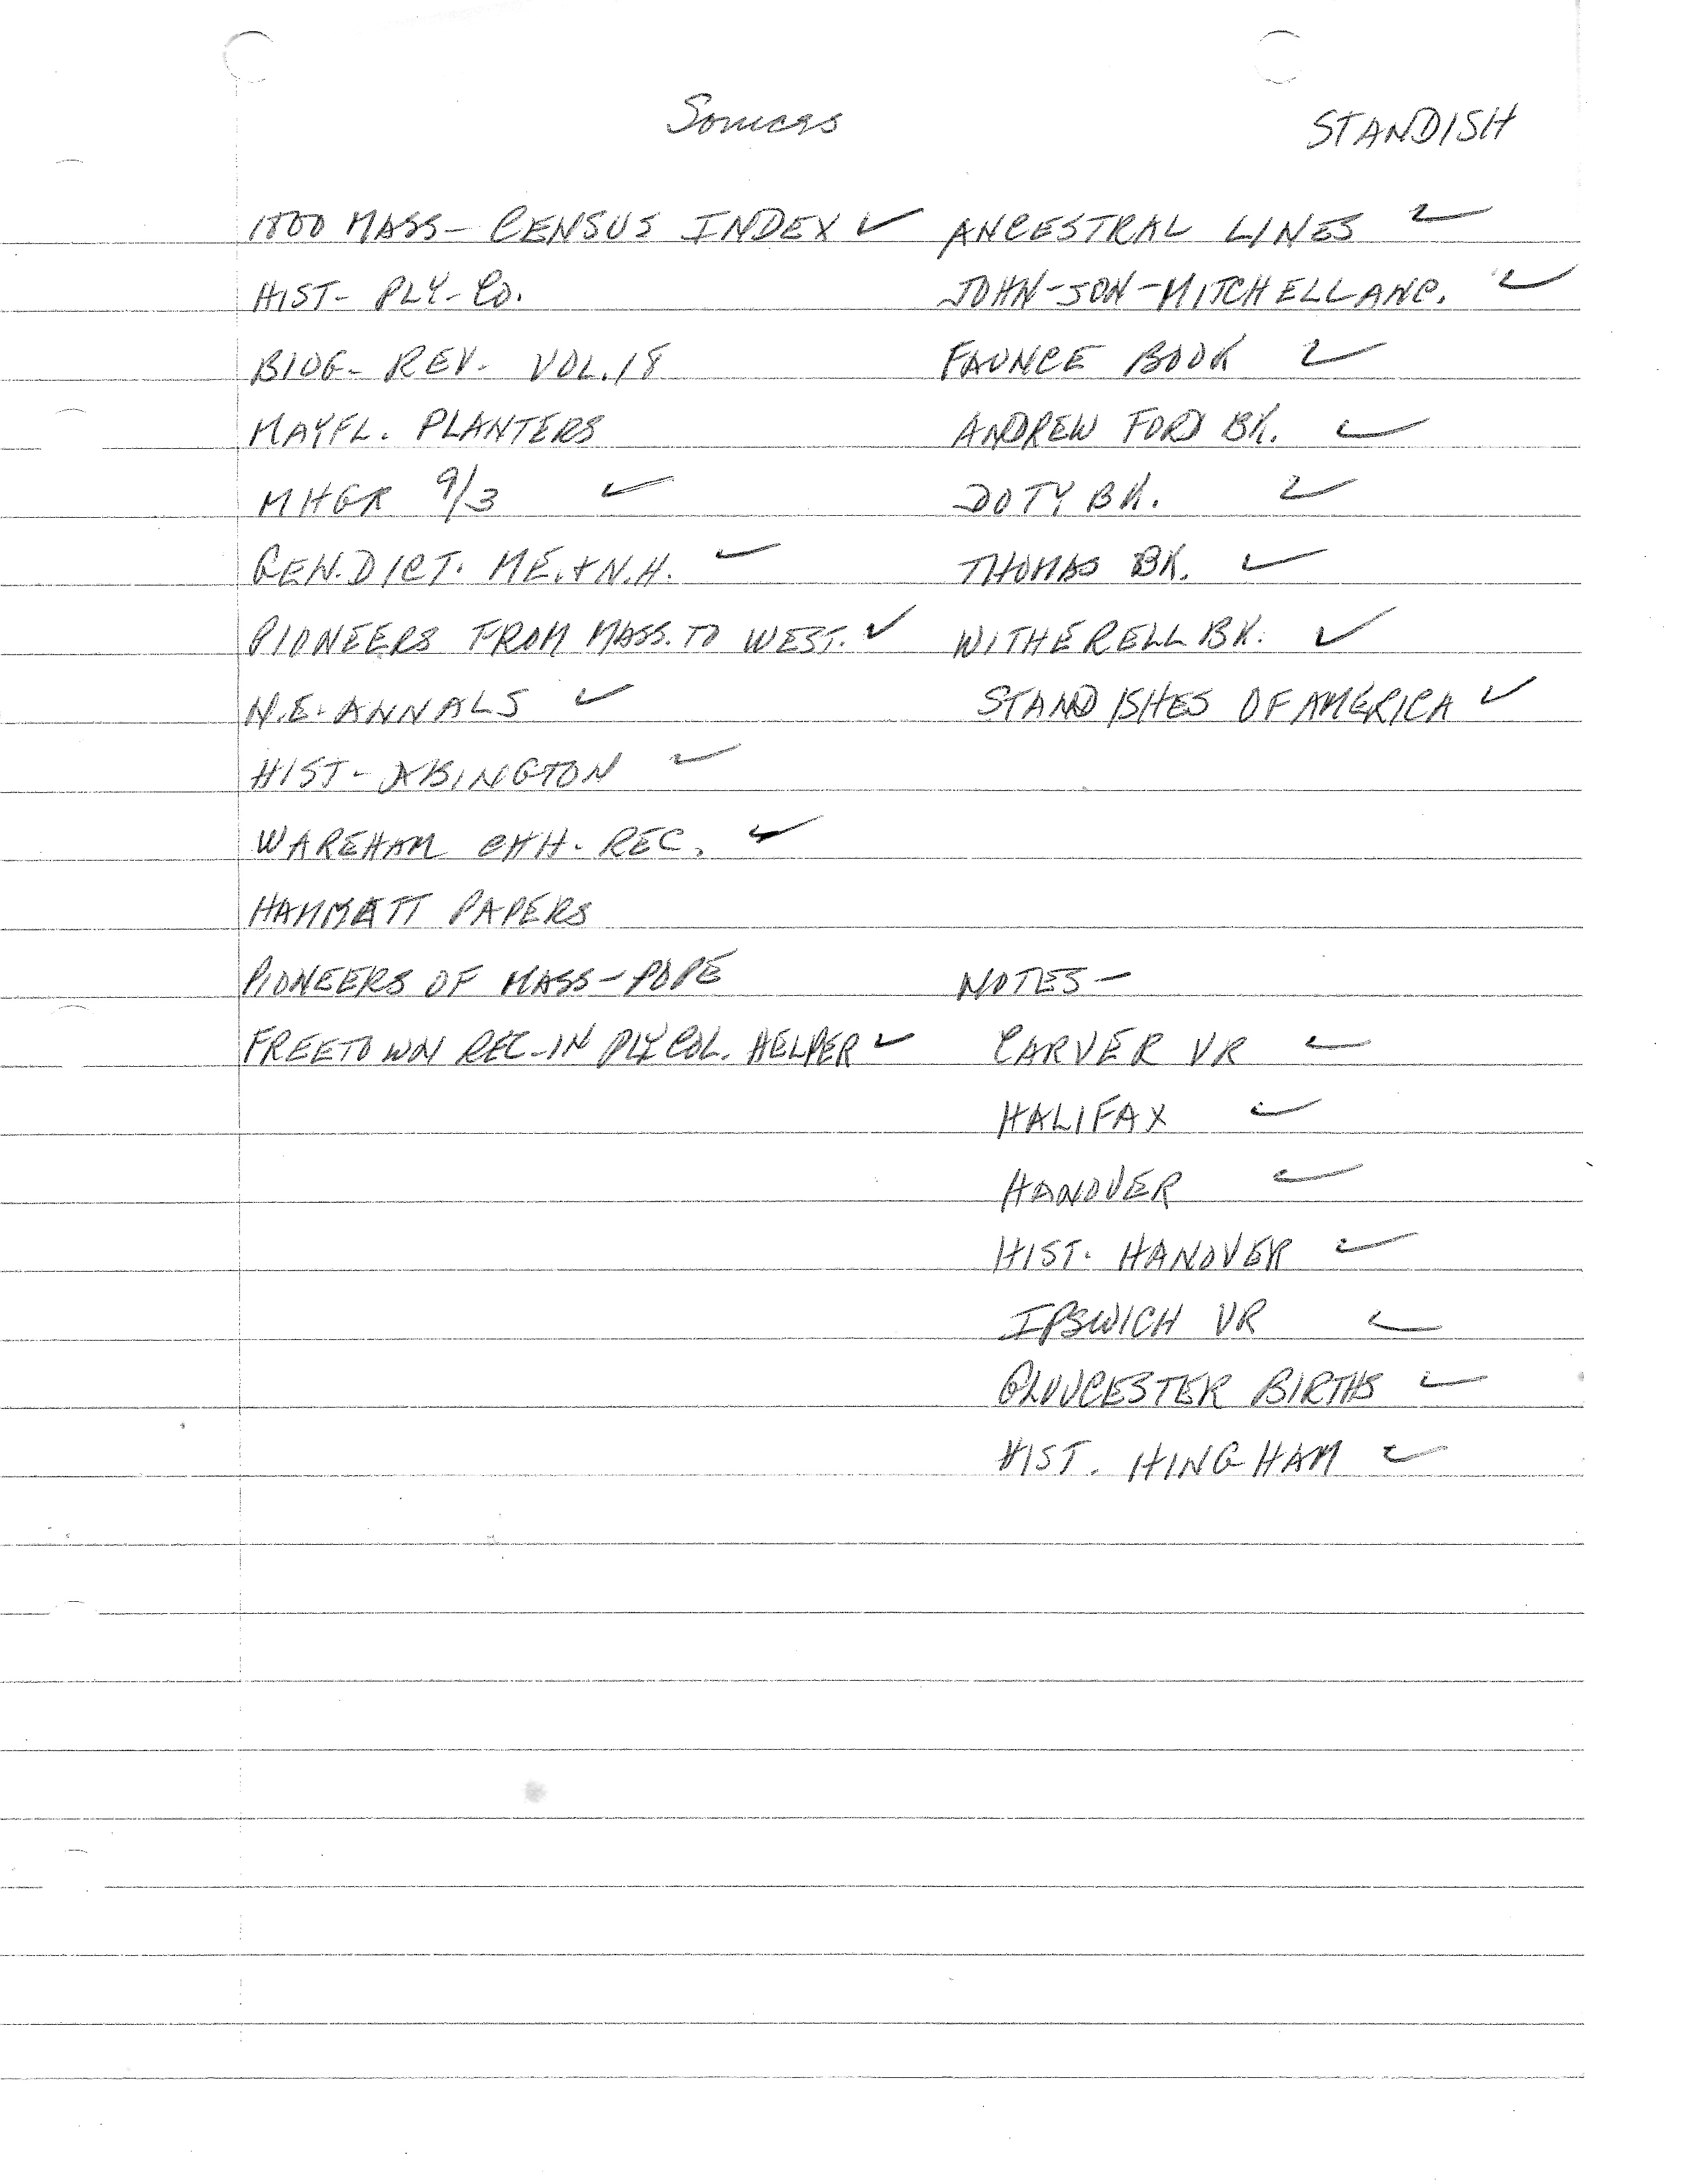 Sources
STANDISH
1800 MASS- CENSUS INDEX ✓
HIST- PLY- CO.
BIOG- REV- VOL. 18
MAYFL. PLANTERS
MHGR 9/3 ✓
GEN. DICT. ME. + N.H. ✓
PIONEERS FROM MASS. TO WEST. ✓
N.E. ANNALS ✓
HIST- ABINGTON ✓
WAREHAM CHH. REC. ✓
HAMMATT PAPERS
PIONEERS OF MASS - POPE
FREETOWN REC- IN PLY. COL. HELPER ✓
ANCESTRAL LINES ✓
JOHN-SON-MITCHELL ANC. ✓
FAUNCE BOOK ✓
ANDREW FORD BK. ✓
DOTY BK. ✓
THOMAS BK. ✓
WITHERELL BK. ✓
STANDISHES OF AMERICA ✓
NOTES-
CARVER VR ✓
HALIFAX ✓
HANOVER ✓
HIST. HANOVER ✓
IPSWICH VR ✓
GLOUCESTER BIRTHS ✓
HIST. HINGHAM ✓